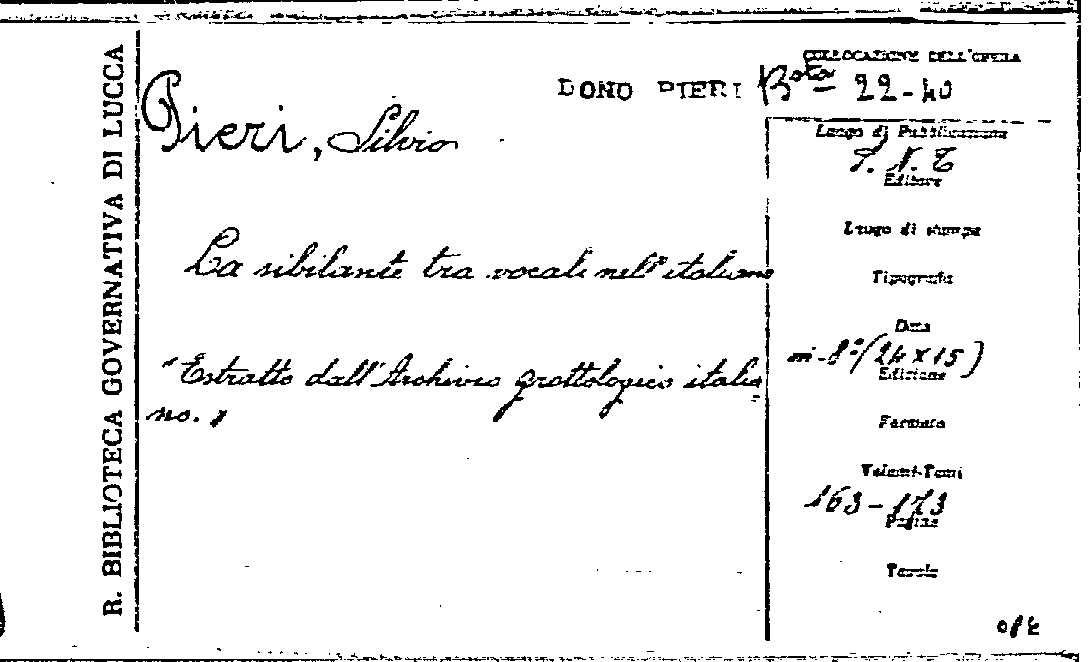 R. BIBLIOTECA GOVERNATIVA DI LUCCA
COLLOCAZIONE DELL'OPERA
DONO PIERI Bᵗᵃ 22-40
Pieri, Silvio
Luogo di Pubblicazione
S. N. T.
Editore
Luogo di stampa
La sibilante tra vocali nell'italiano
Tipografia
Data
in-8º (24 x 15)
Edizione
"Estratto dall'Archivio grottologico italia
no. "
Formato
Volumi-Tomi
163-173
Pagine
Tavole